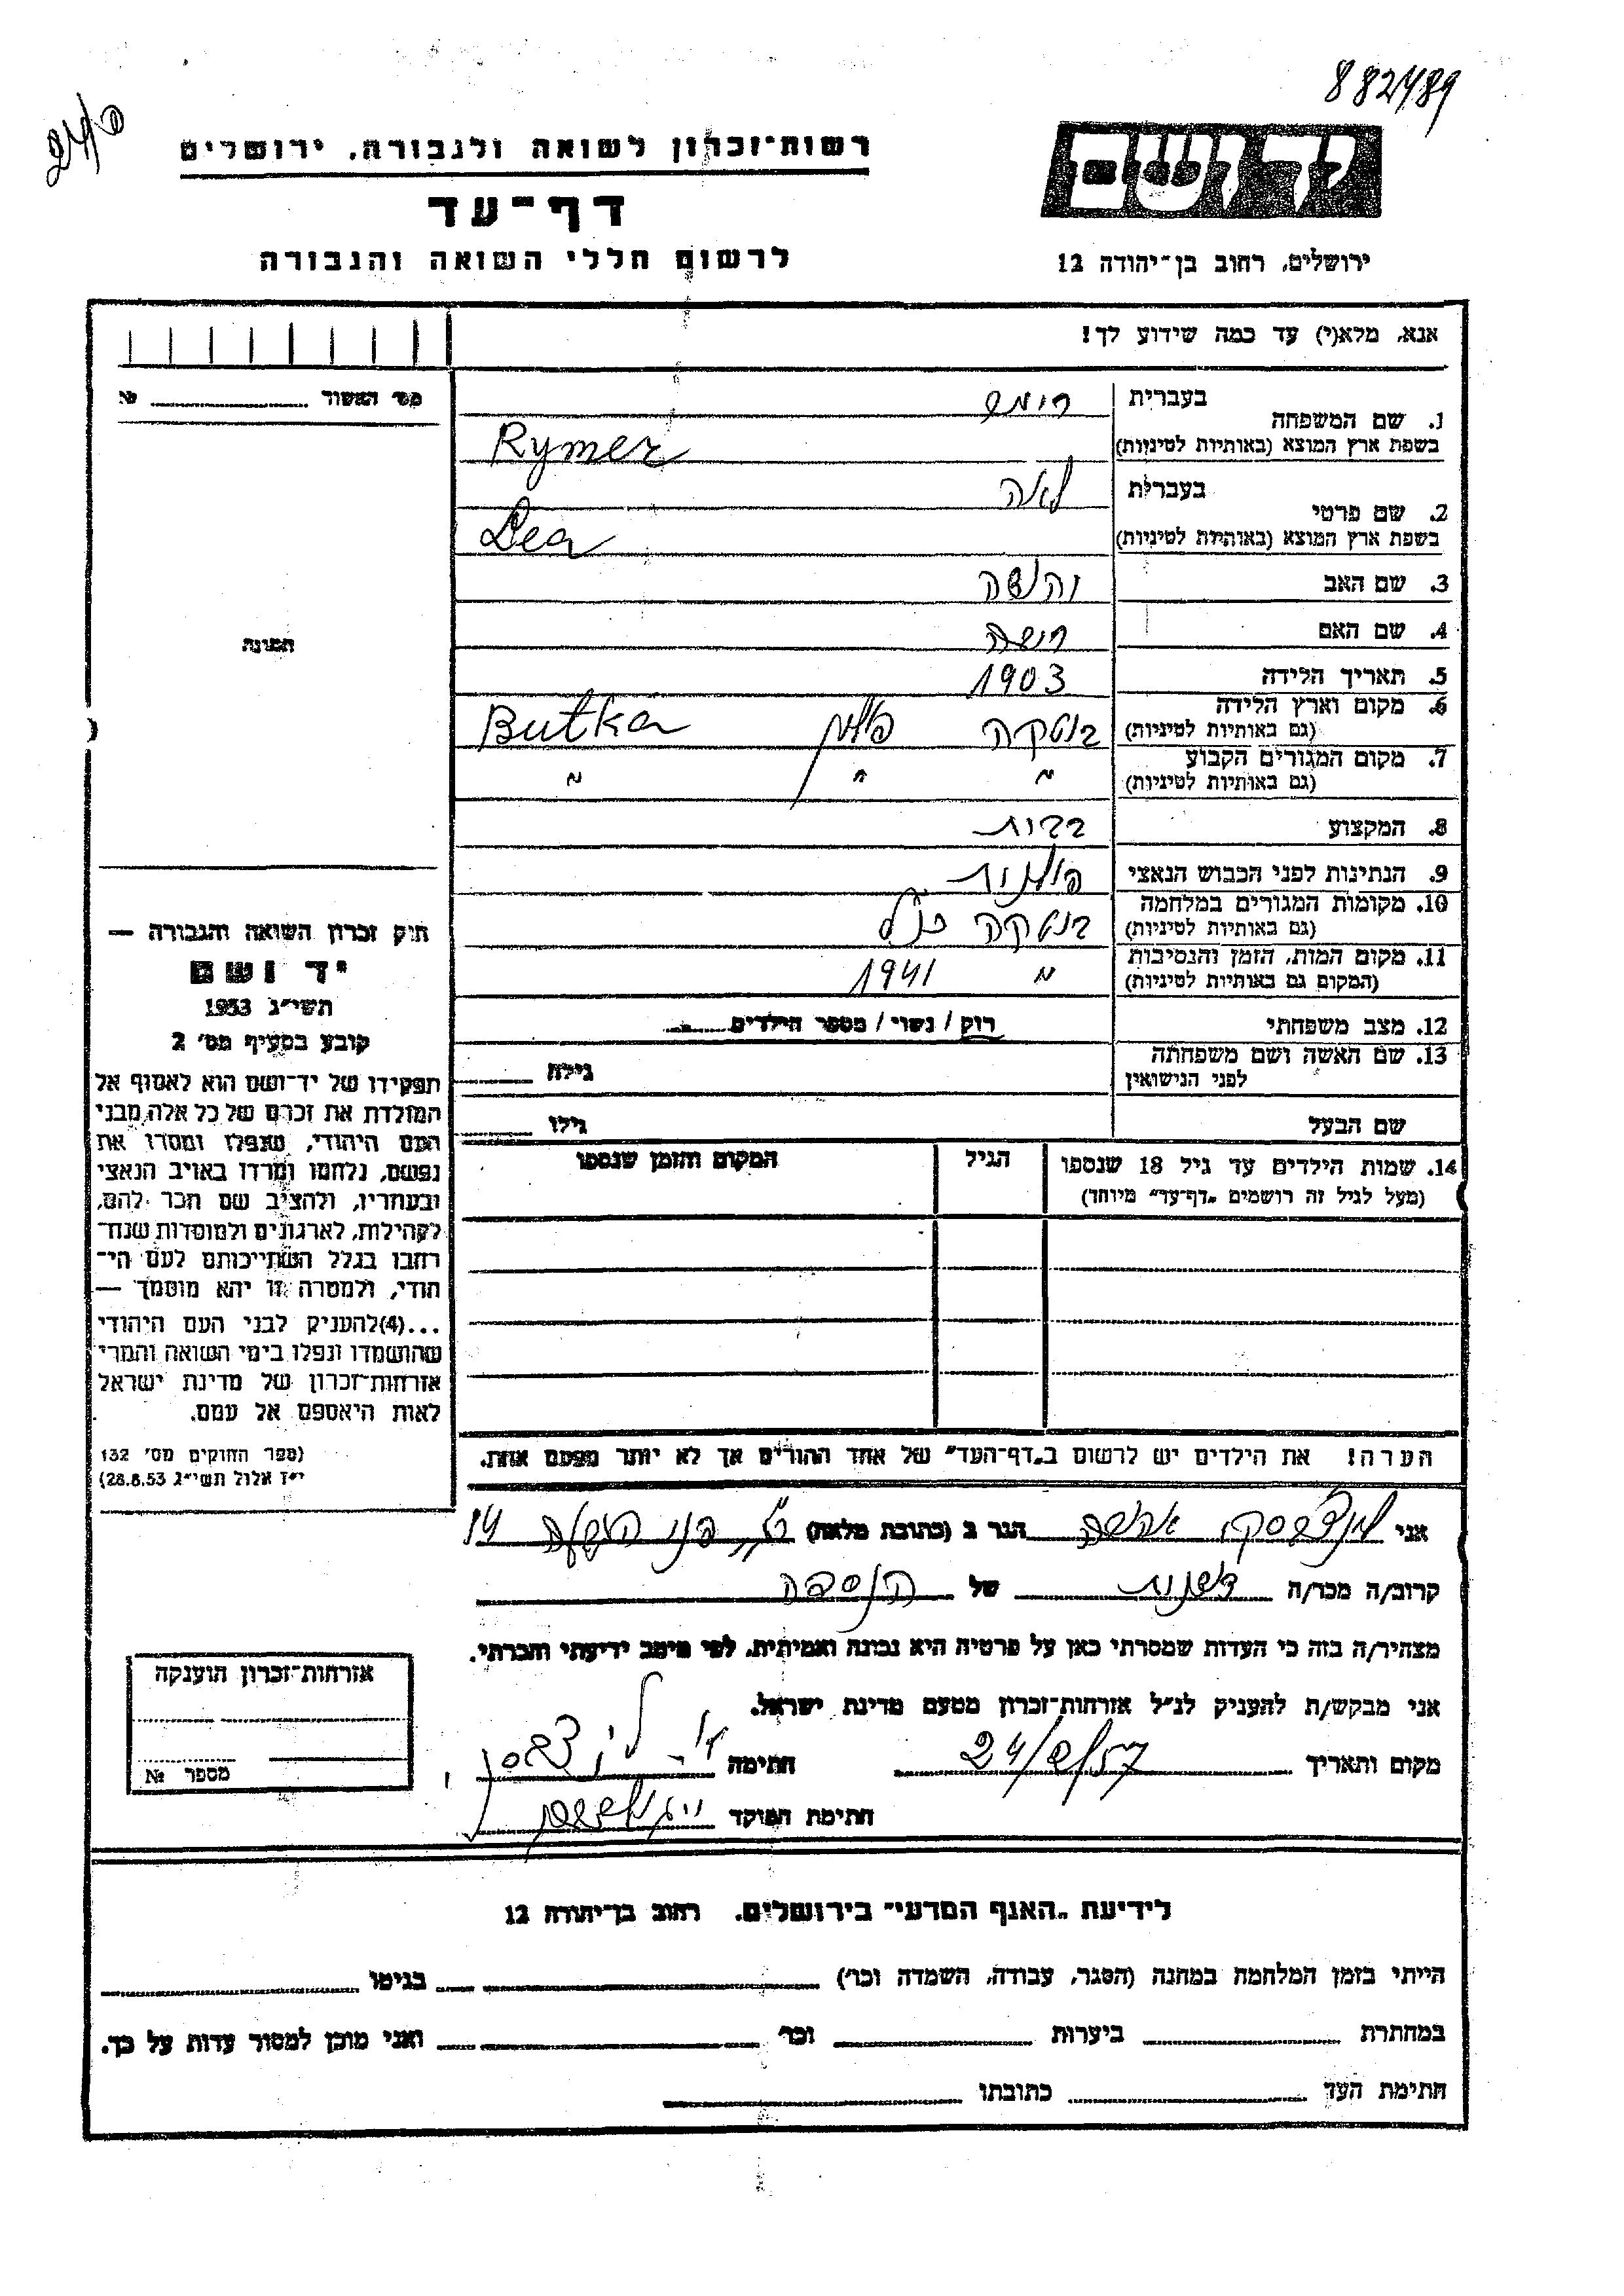 882489
24/0
רשות־זכרון לשואה ולגבורה, ירושלים
דף־עד
לרשום חללי השואה והגבורה
ירושלים, רחוב בן־יהודה 12
אנא, מלא(י) עד כמה שידוע לך!
מס' האשור № 
1. שם המשפחה
בעברית
בשפת ארץ המוצא (באותיות לטיניות)
Rymer
2. שם פרטי
בעברית לאה
בשפת ארץ המוצא (באותיות לטיניות)
Lea
3. שם האב
4. שם האם
5. תאריך הלידה 1903
6. מקום וארץ הלידה
(גם באותיות לטיניות) בוטקה פולין Butka
7. מקום המגורים הקבוע
(גם באותיות לטיניות) " " "
8. המקצוע
9. הנתינות לפני הכבוש הנאצי פולנית
10. מקומות המגורים במלחמה
(גם באותיות לטיניות) בוטקה כנ"ל
11. מקום המות, הזמן והנסיבות
(המקום גם באותיות לטיניות) " 1941
12. מצב משפחתי רוק / נשוי / מספר הילדים
13. שם האשה ושם משפחתה
לפני הנישואין גילה
שם הבעל גילו
14. שמות הילדים עד גיל 18 שנספו הגיל המקום והזמן שנספו
(מעל לגיל זה רושמים "דף־עד" מיוחד)
תמונה
חוק זכרון השואה והגבורה —
יד ושם
תשי"ג 1953
קובע בסעיף מס' 2
תפקידו של יד־ושם הוא לאסוף אל
המולדת את זכרם של כל אלה, מבני
העם היהודי, שנפלו ומסרו את
נפשם, נלחמו ומרדו באויב הנאצי
ובעוזריו, ולהציב שם וזכר להם,
לקהילות, לארגונים ולמוסדות שנח־
רבו בגלל השתייכותם לעם הי־
הודי, ולמטרה זו יהא מוסמך —
...(4)להעניק לבני העם היהודי
שהושמדו ונפלו בימי השואה והמרי
אזרחות־זכרון של מדינת ישראל
לאות היאספם אל עמם.
(ספר החוקים מס' 132
י"ז אלול תשי"ג 28.8.53)
הערה! את הילדים יש לרשום ב"דף־העד" של אחד ההורים אך לא יותר מפעם אחת.
אני הגר ב (כתובת מלאה) 14
קרוב/ה מכר/ה שכנות של הנספה
מצהיר/ה בזה כי העדות שמסרתי כאן על פרטיה היא נכונה ואמיתית, לפי מיטב ידיעתי והכרתי.
אני מבקש/ת להעניק לנ"ל אזרחות־זכרון מטעם מדינת ישראל.
מקום ותאריך 24/2/57 חתימה
חתימת הפוקד
אזרחות־זכרון הוענקה
מספר №
לידיעת "האגף המדעי" בירושלים, רחוב בן־יהודה 12
הייתי בזמן המלחמה במחנה (הסגר, עבודה, השמדה וכו') בגיטו
במחתרת ביערות וכו' ואני מוכן למסור עדות על כך.
חתימת העד כתובתו